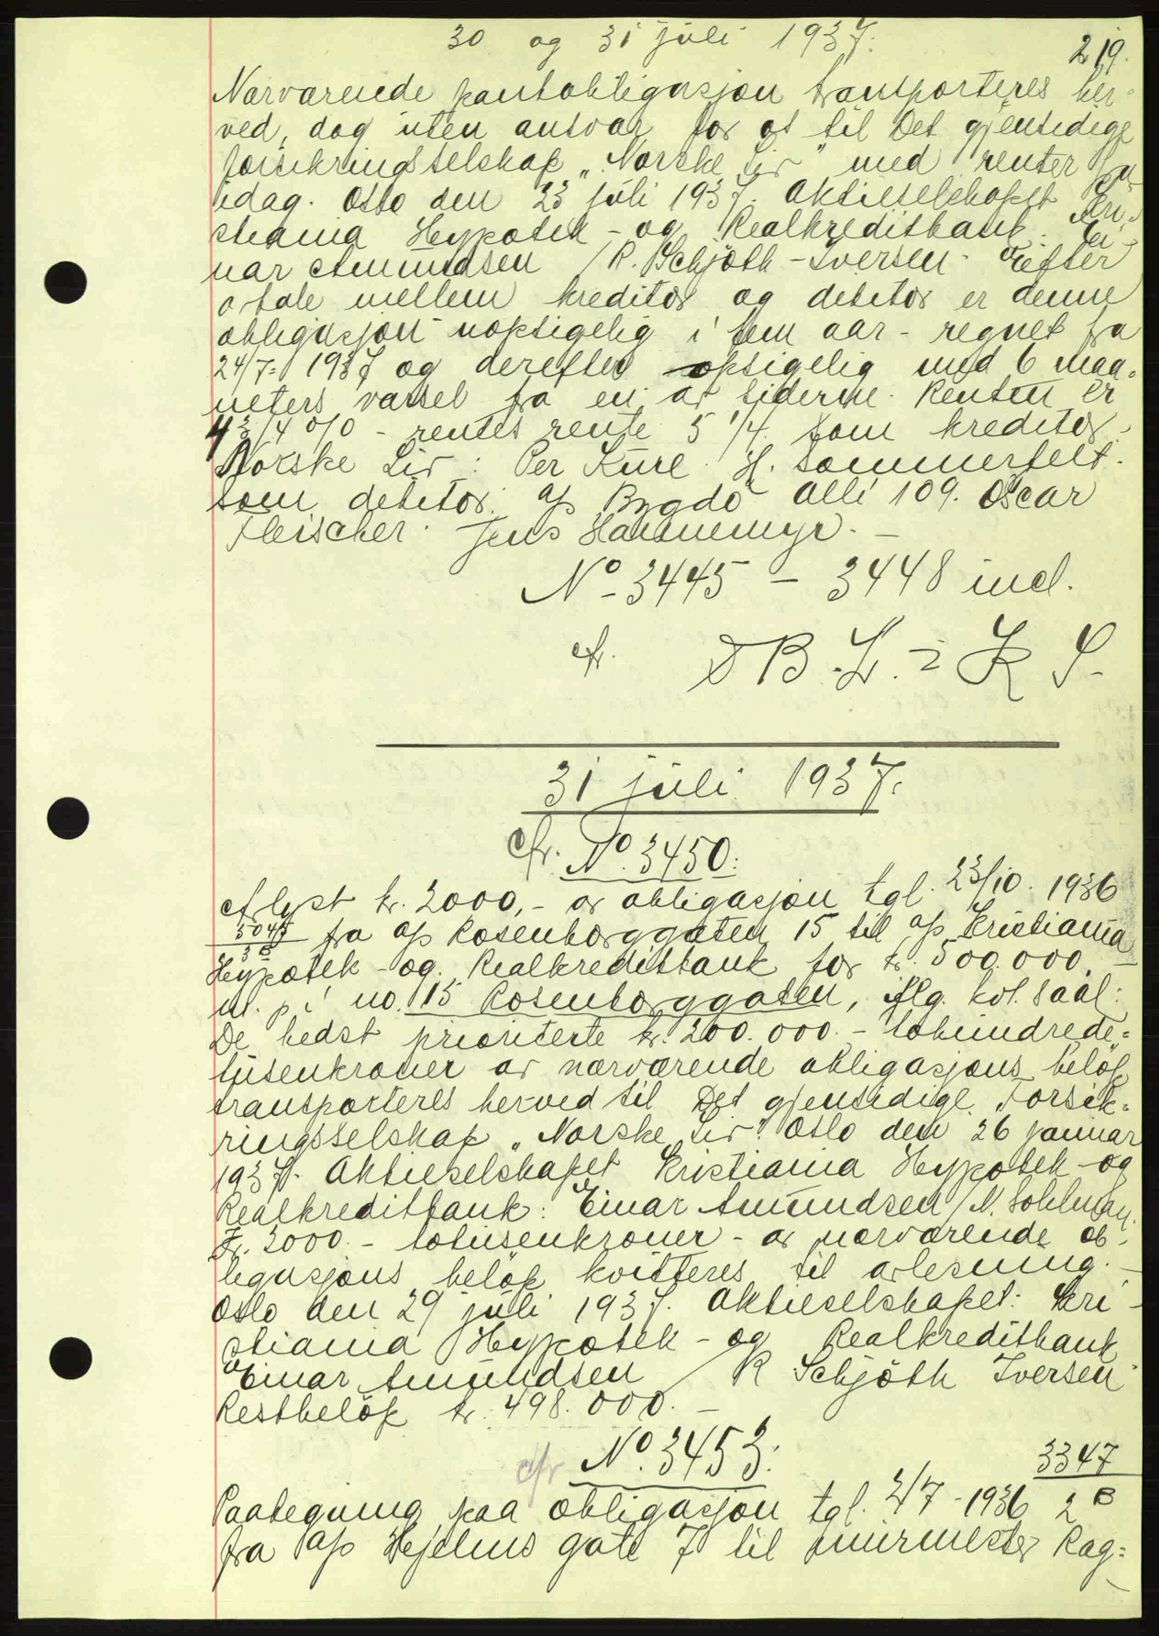 30 og 31 juli 1937.
219.
Nærværende pantobligasjon transporteres her-
ved, dog uten ansvar for os til Det gjensidige
forsikringsselskap "Norske Liv" med renter fra
idag. Oslo den 23 juli 1937. Aktieselskapet Kri-
stiania Hypotek- og Realkreditbank. Ei-
nar Amundsen / R. Schjöth-Iversen. Efter
avtale mellem kreditor og debitor er denne
obligasjon uopsigelig i fem aar - regnet fra
24/7- 1937 og derefter opsigelig med 6 maa-
neders varsel fra en av siderne. Renten er
4 3/4 o/o - rentes rente 5 1/4. Som kreditor:
Norske Liv: Per Kure H. Sommerfelt.
som debitor: A/S Bygdö Alle 109. Oscar
Fleischer. Jens Hannemyr. -
No 3445 - 3448 incl.
cfr. D B. L. i K S.
31 juli 1937.
cfr. No. 3450:
Avlyst kr. 2000,- av obligasjon tgl. 23/10. 1936
5045 fra A/S Rosenborggaten 15 til A/S Kristiania
Hypotek- og Realkreditbank for kr. 500.000. -
m. p. i no. 15 Rosenborggaten, iflg. kvl. saal:
De bedst prioriterte kr. 200.000.- tohundrede-
tusenkroner av nærværende obligasjons belöp
transporteres herved til Det gjensidige Forsik-
ringsselskap "Norske Liv". Oslo den 26 januar
1937. Aktieselskapet Kristiania Hypotek- og
Realkreditbank: Einar Amundsen / N.
Kr. 2000.- totusenkroner- av nærværende ob-
ligasjons belöp kvitteres til avlesning. -
Oslo den 29 juli 1937. Aktieselskapet: Kri-
stiania Hypotek- og Realkreditbank
Einar Amundsen / R Schjöth Iversen
Restbelöp kr. 498.000. -
cfr No. 3453:
3347
Paategning paa obligasjon tgl. 2/7 - 1936 2 B
fra A/S Hjelms gate 7 til murmester Rag-